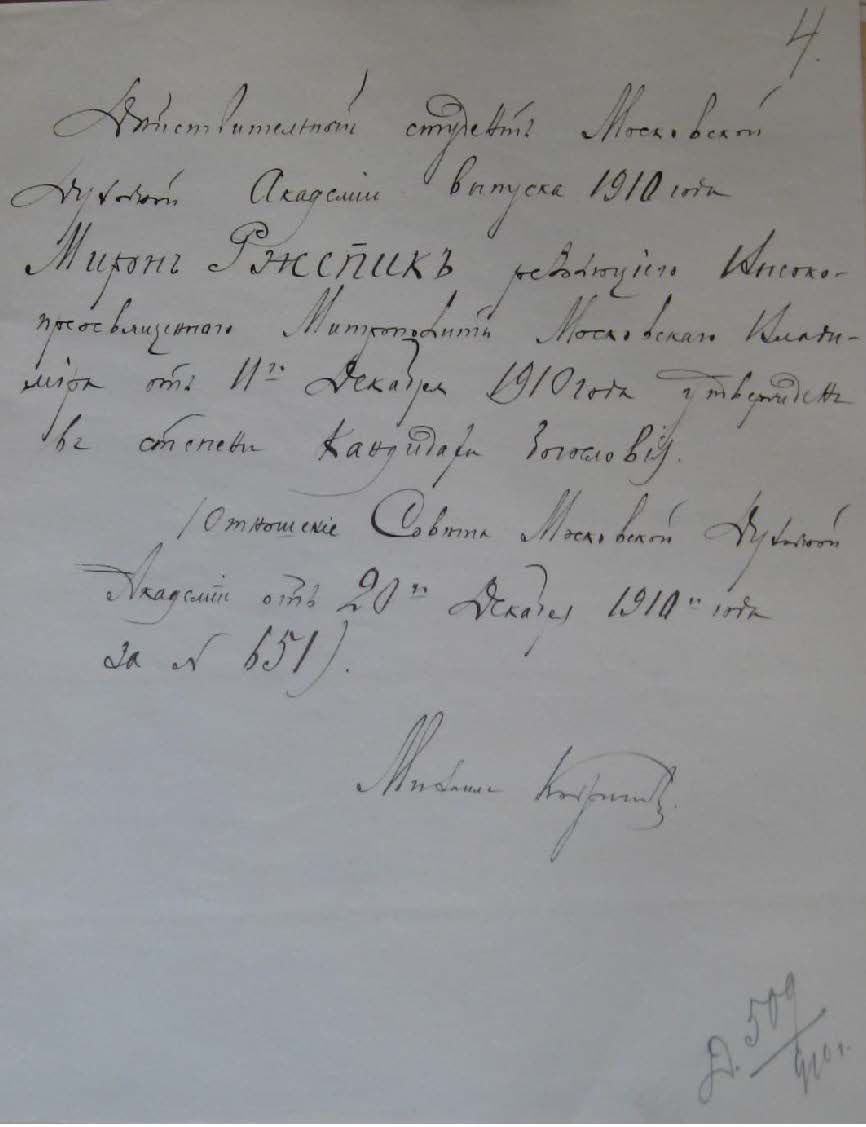 4.
Дѣйствительный студентъ Московской
Духовной Академіи выпуска 1910 года
Миронъ РЖЕПИКЪ резолюціею Высоко-
преосвященнаго Митрополита Московскаго Влади-
міра отъ 11го Декабря 1910 года утвержденъ
въ степени Кандидата Богословія.
(Отношеніе Совѣта Московской Духовной
Академіи отъ 20го Декабря 1910го года
за N 651).
Михаилъ
Д. 509/910 г.